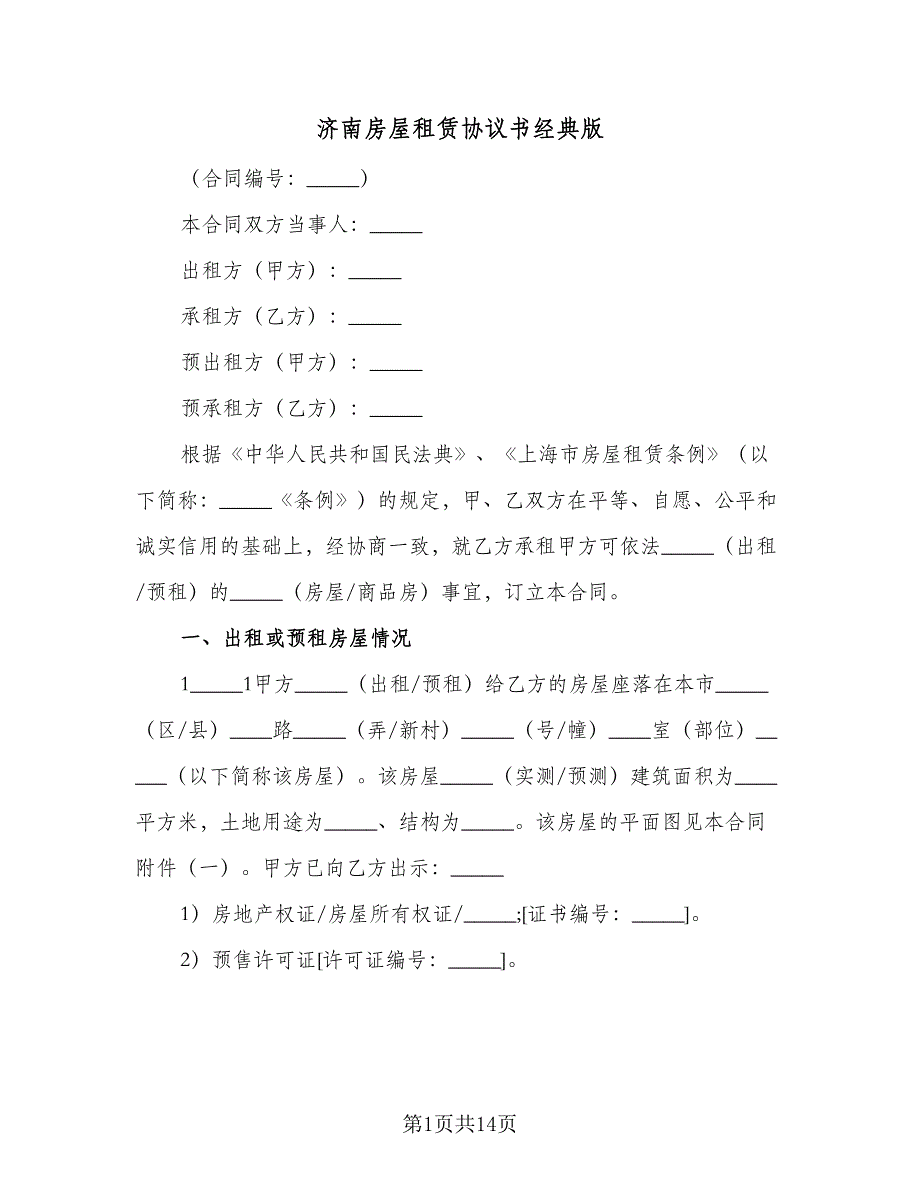 济南房屋租赁协议书经典版
（合同编号：_____）
本合同双方当事人：_____
出租方（甲方）：_____
承租方（乙方）：_____
预出租方（甲方）：_____
预承租方（乙方）：_____
根据《中华人民共和国民法典》、《上海市房屋租赁条例》（以
下简称：_____《条例》）的规定，甲、乙双方在平等、自愿、公平和
诚实信用的基础上，经协商一致，就乙方承租甲方可依法_____（出租
/预租）的_____（房屋/商品房）事宜，订立本合同。
一、出租或预租房屋情况
1_____1甲方_____（出租/预租）给乙方的房屋座落在本市_____
（区/县）____路_____（弄/新村）_____（号/幢）____室（部位）__
___（以下简称该房屋）。该房屋_____（实测/预测）建筑面积为____
平方米，土地用途为_____、结构为_____。该房屋的平面图见本合同
附件（一）。甲方已向乙方出示：_____
1）房地产权证/房屋所有权证/_____;[证书编号：_____]。
2）预售许可证[许可证编号：_____]。
第1页共14页